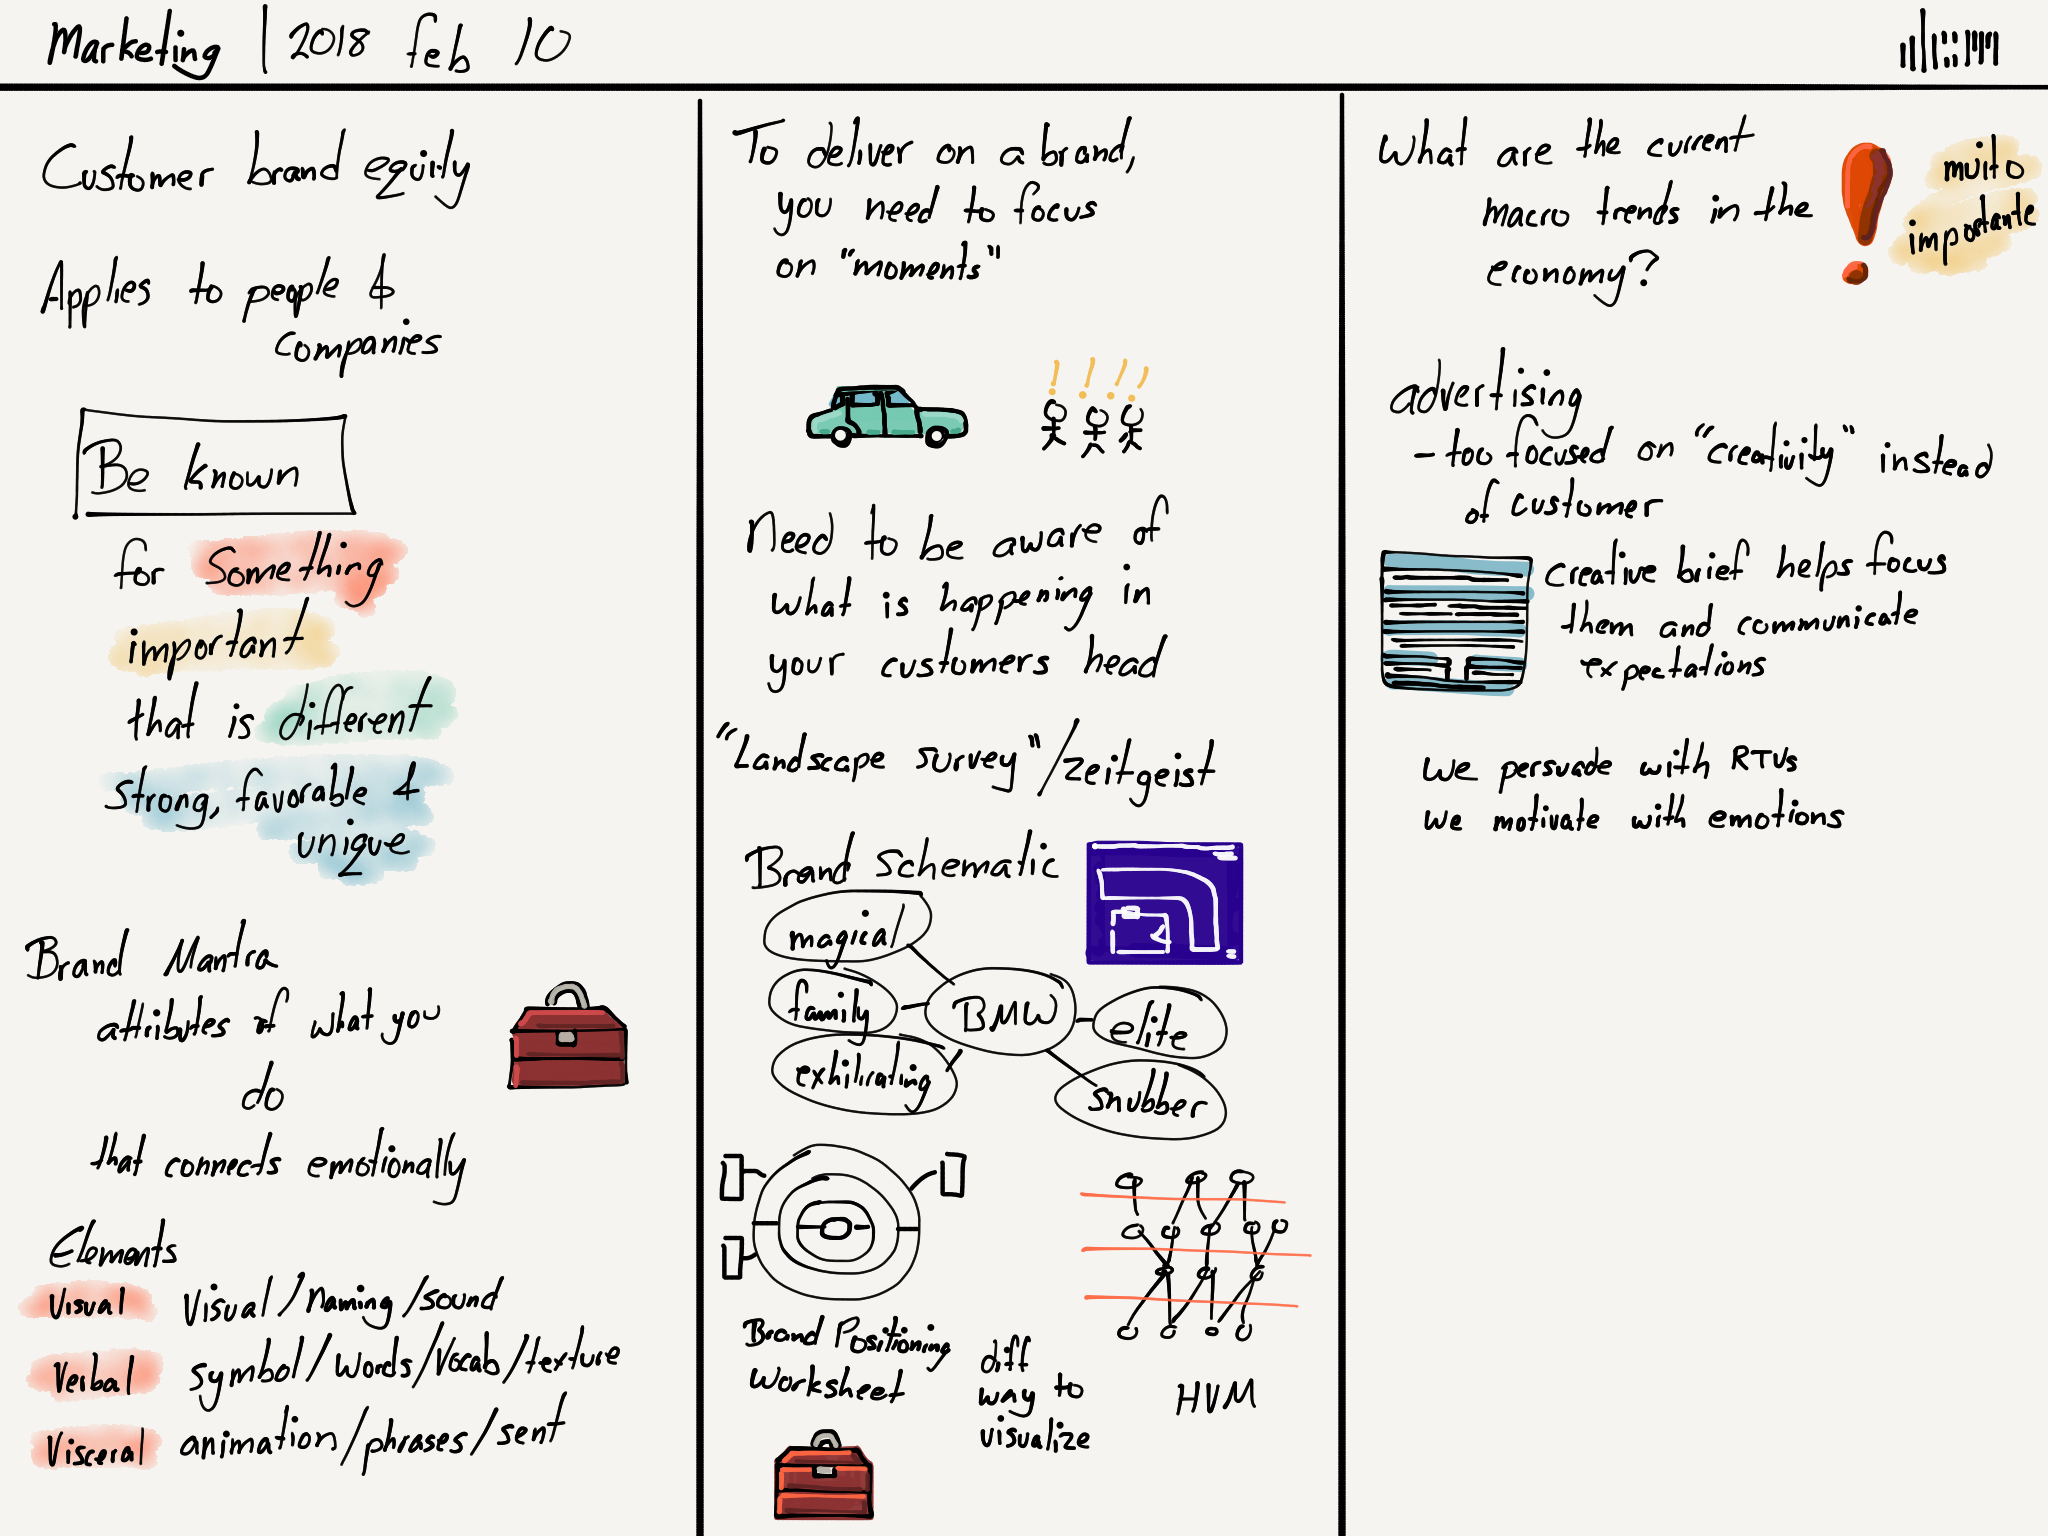 Marketing | 2018 feb 10
Customer brand equity
Applies to people &
companies
Be known
for something
important
that is different
strong, favorable &
unique
Brand Mantra
attributes of what you
do
that connects emotionally
Elements
Visual Visual/naming/sound
Verbal symbol/words/vocab/texture
Visceral animation/phrases/sent
To deliver on a brand,
you need to focus
on "moments"
! ! ! !
Need to be aware of
what is happening in
your customers head
"Landscape survey"/zeitgeist
Brand schematic
magical
family
BMW
elite
exhilirating
snubber
Brand Positioning
Worksheet
diff
way to
visualize
HVM
What are the current
macro trends in the
economy?
muito
importante
advertising
- too focused on "creativity" instead
of customer
creative brief helps focus
them and communicate
expectations
we persuade with RTVs
we motivate with emotions